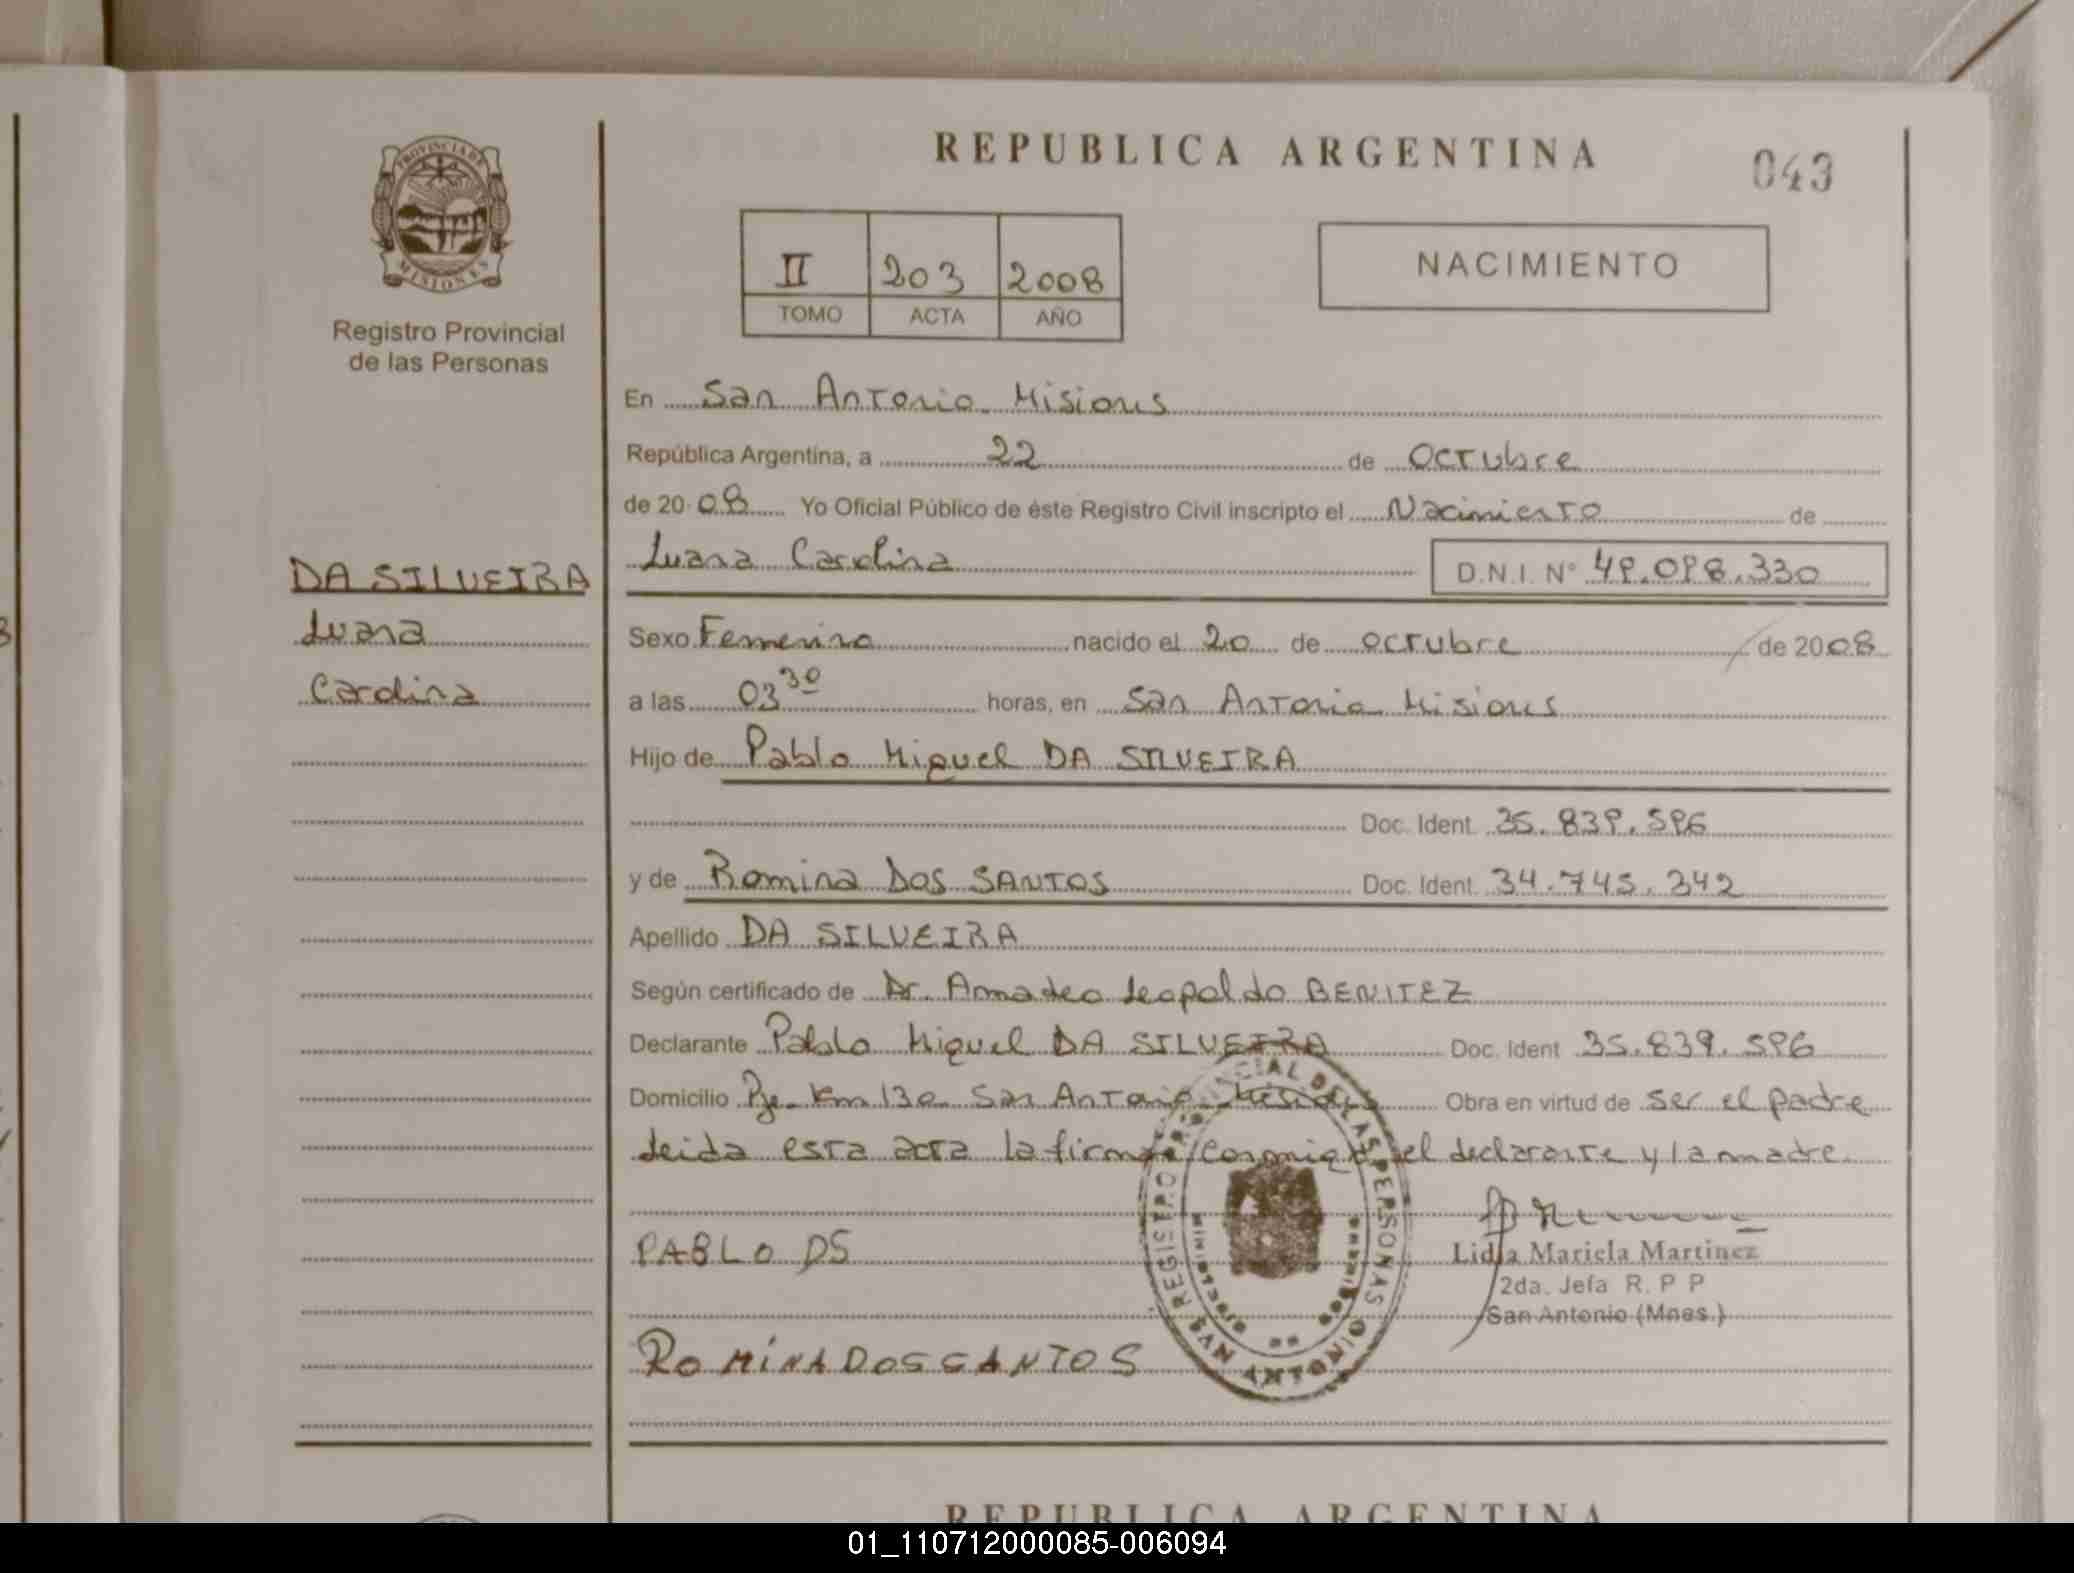 REPUBLICA ARGENTINA
043
PROVINCIA DE
MISIONES
Registro Provincial
de las Personas
II 203 2008
TOMO ACTA AÑO
NACIMIENTO
En San Antonio Misiones
República Argentina, a 22 de octubre
de 2008 Yo Oficial Público de éste Registro Civil inscripto el Nacimiento de
Luana Carolina D.N.I. N° 49.098.330
DA SILVEIRA
Luana
Carolina
Sexo Femenino nacido el 20 de octubre de 2008
a las 03 30 horas, en San Antonio Misiones
Hijo de Pablo Miguel DA SILVEIRA
Doc. Ident. 35.839.596
y de Romina DOS SANTOS Doc. Ident. 34.745.342
Apellido DA SILVEIRA
Según certificado de Dr. Amadeo Leopoldo BENITEZ
Declarante Pablo Miguel DA SILVEIRA Doc. Ident 35.839.596
Domicilio Pje. Km 130 San Antonio Misiones Obra en virtud de ser el padre
Leida esta acta la firman conmigo el declarante y la madre
PABLO DS
ROMINA DOS SANTOS
REGISTRO PROVINCIAL DE LAS PERSONAS
SAN ANTONIO
Lidia Mariela Martinez
2da. Jefa R. P P
San Antonio (Mnes.)
REPUBLICA ARGENTINA
01_110712000085-006094